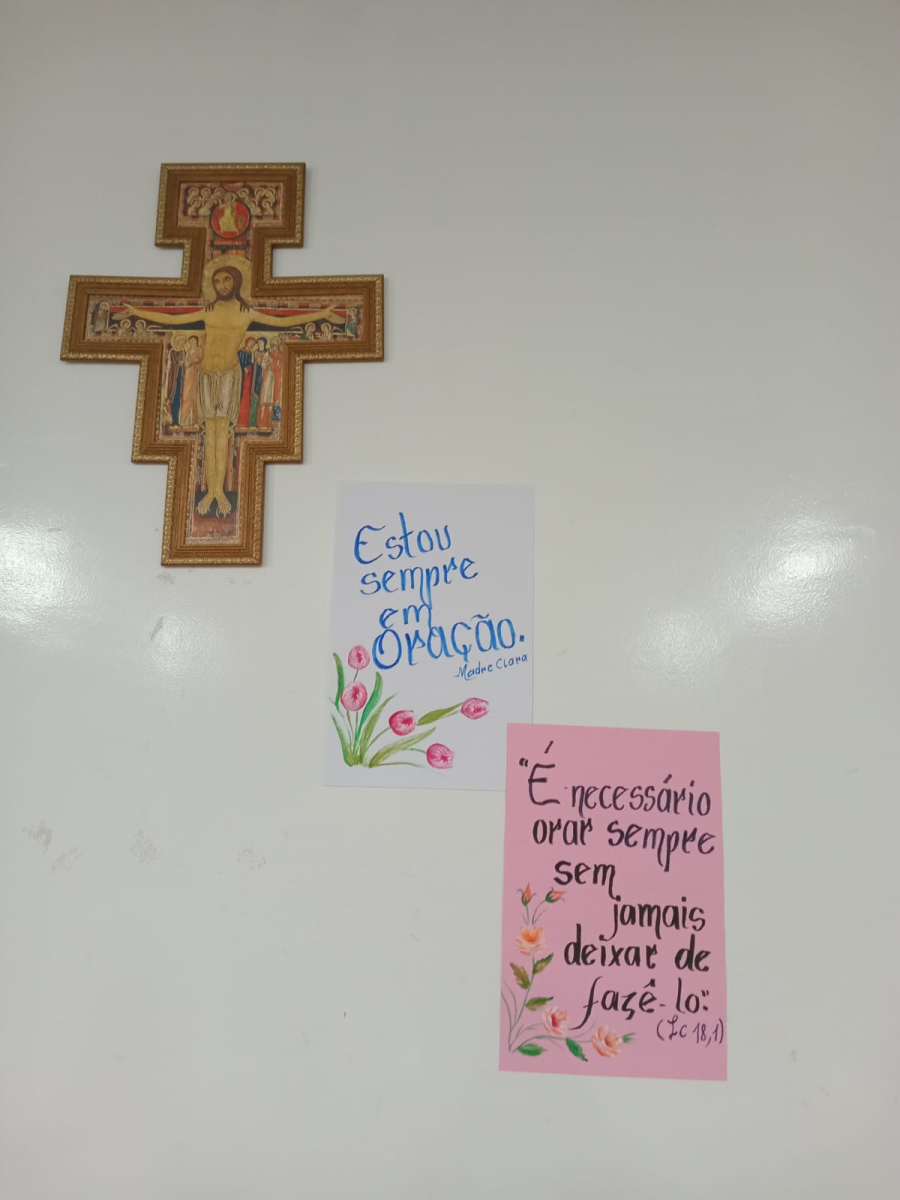 Estou
sempre
em
Oração.
Madre Clara
"É necessário
orar sempre
sem
jamais
deixar de
fazê-lo."
(Lc 18,1)